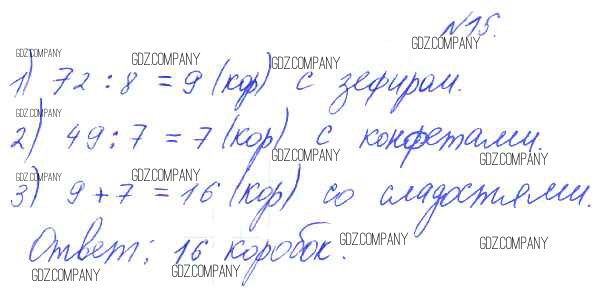 №15.
GDZ.COMPANY
GDZ.COMPANY GDZ.COMPANY GDZ.COMPANY
1) 72 : 8 = 9 (кор) с зефиром.
GDZ.COMPANY
2) 49 : 7 = 7 (кор) с конфетами.
GDZ.COMPANY GDZ.COMPANY
GDZ.COMPANY GDZ.COMPANY
3) 9 + 7 = 16 (кор) со сладостями.
Ответ: 16 коробок.
GDZ.COMPANY GDZ.COMPANY
GDZ.COMPANY GDZ.COMPANY